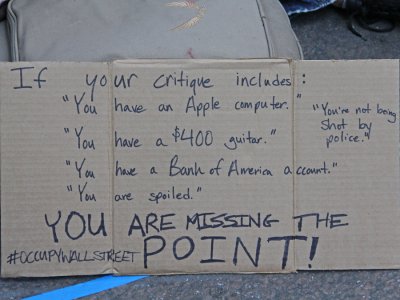 If your critique includes:
"You have an Apple computer."
"You have a $400 guitar."
"You have a Bank of America account."
"You are spoiled."
"You're not being
shot by
police."
YOU ARE MISSING THE
POINT!
#OCCUPYWALLSTREET